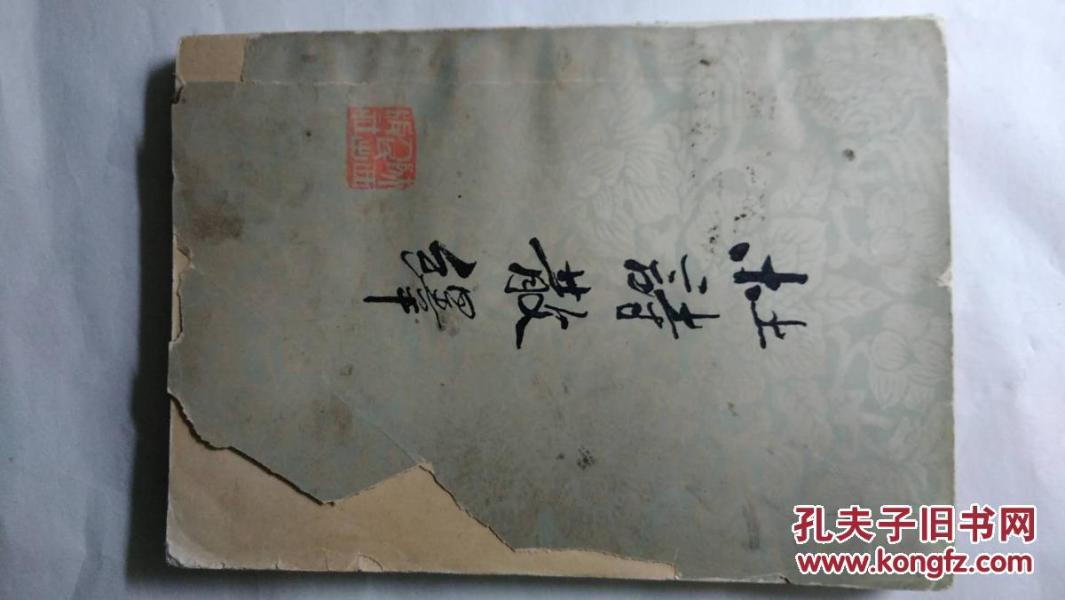 杜詩散繹
孔夫子旧书网
www.kongfz.com